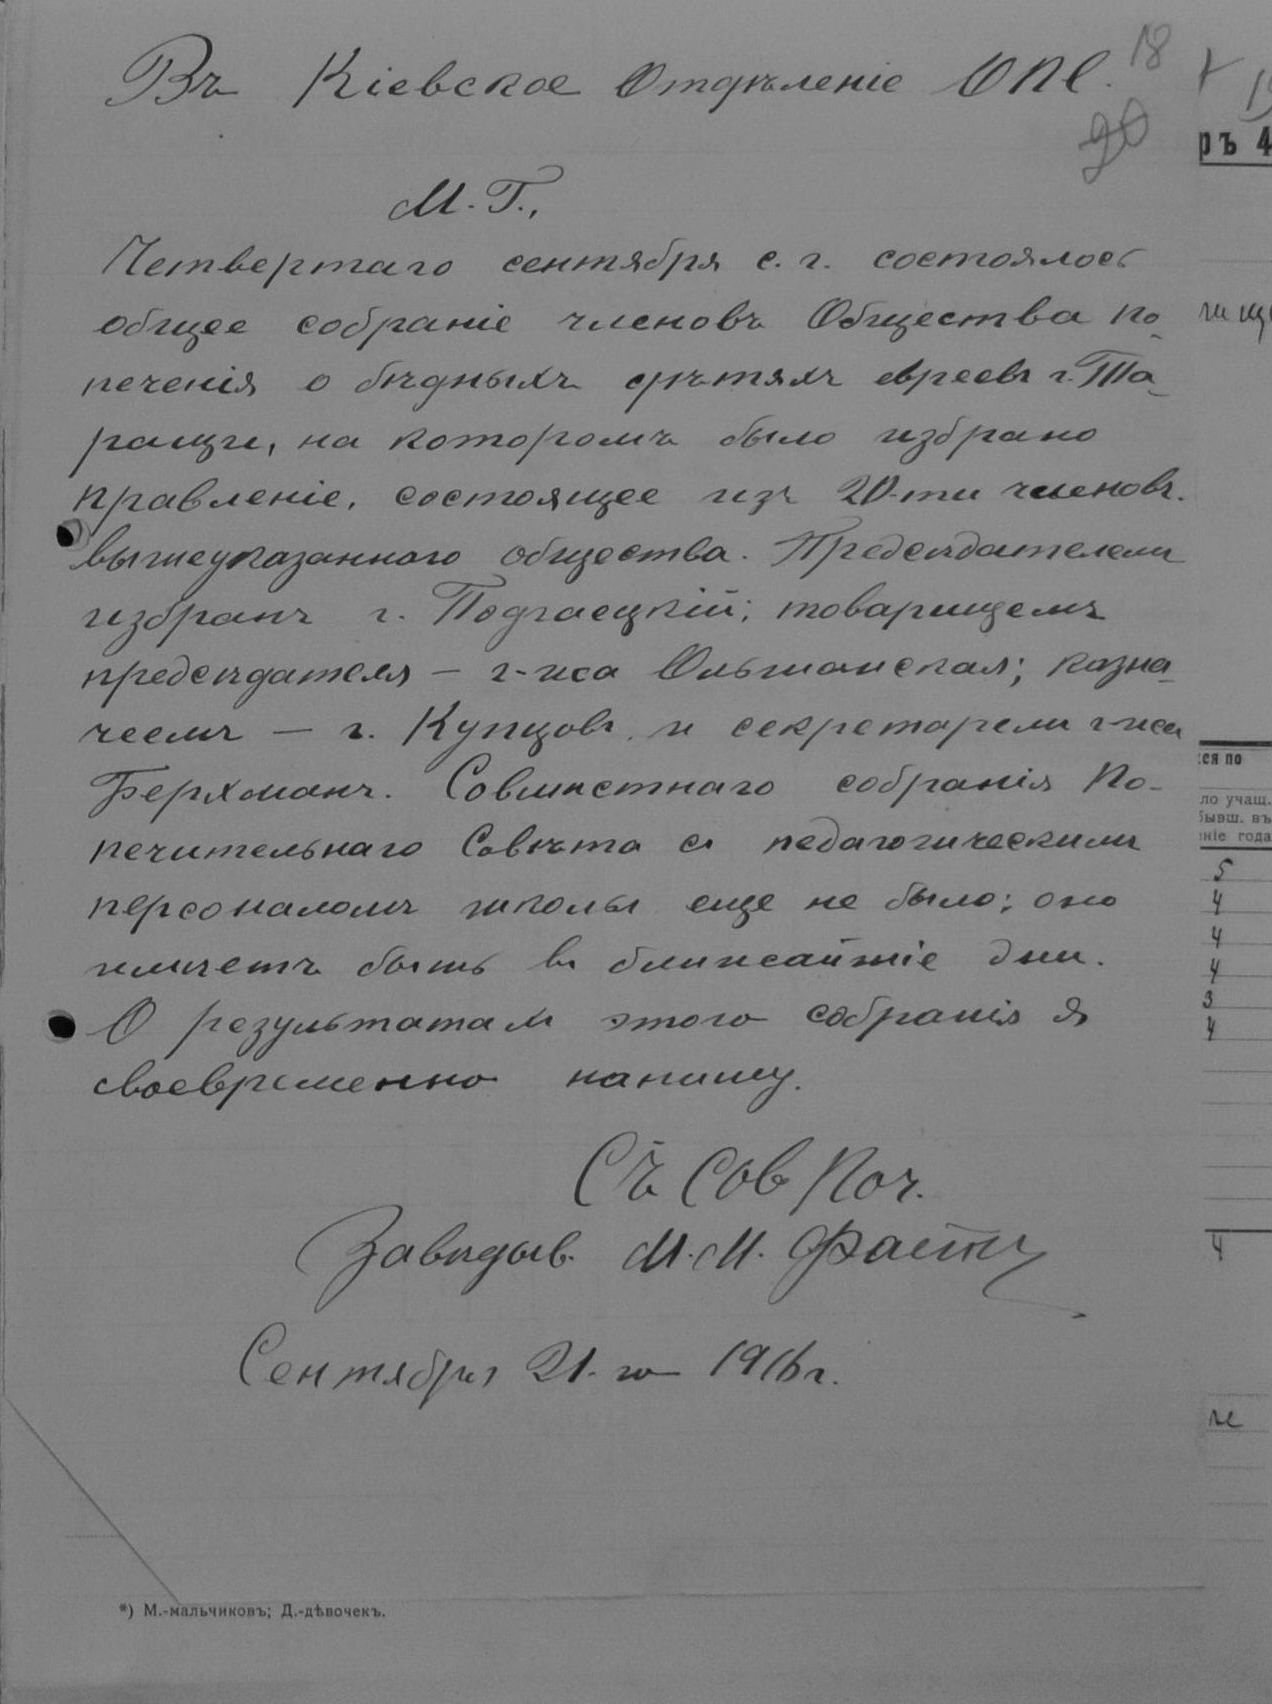 18
20
Въ Кіевское Отдѣленіе ОПЕ.
М. Г.,
Четвертаго сентября с. г. состоялось
общее собраніе членовъ Общества по-
печенія о бѣдныхъ дѣтяхъ евреевъ г. Та-
ращи, на которомъ было избрано
правленіе, состоящее изъ 20-ти членовъ
вышеуказаннаго общества. Предсѣдателемъ
избранъ г. Подгаецкій; товарищемъ
предсѣдателя — г-жа Ольшанская; казна-
чеемъ — г. Купцовъ и секретаремъ г-жа
Берхманъ. Совмѣстнаго собранія По-
печительнаго Совѣта съ педагогическимъ
персоналомъ школы еще не было; оно
имѣетъ быть въ ближайшіе дни.
О результатахъ этого собранія я
своевременно напишу.
Съ Сов Поч.
Завѣдыв. М. М. Фастъ
Сентября 21-го 1916 г.
*) М.-мальчиковъ; Д.-дѣвочекъ.
ръ 4
ся по
ло учащ.
бывш. въ
ніе года
5
4
4
4
3
4
4